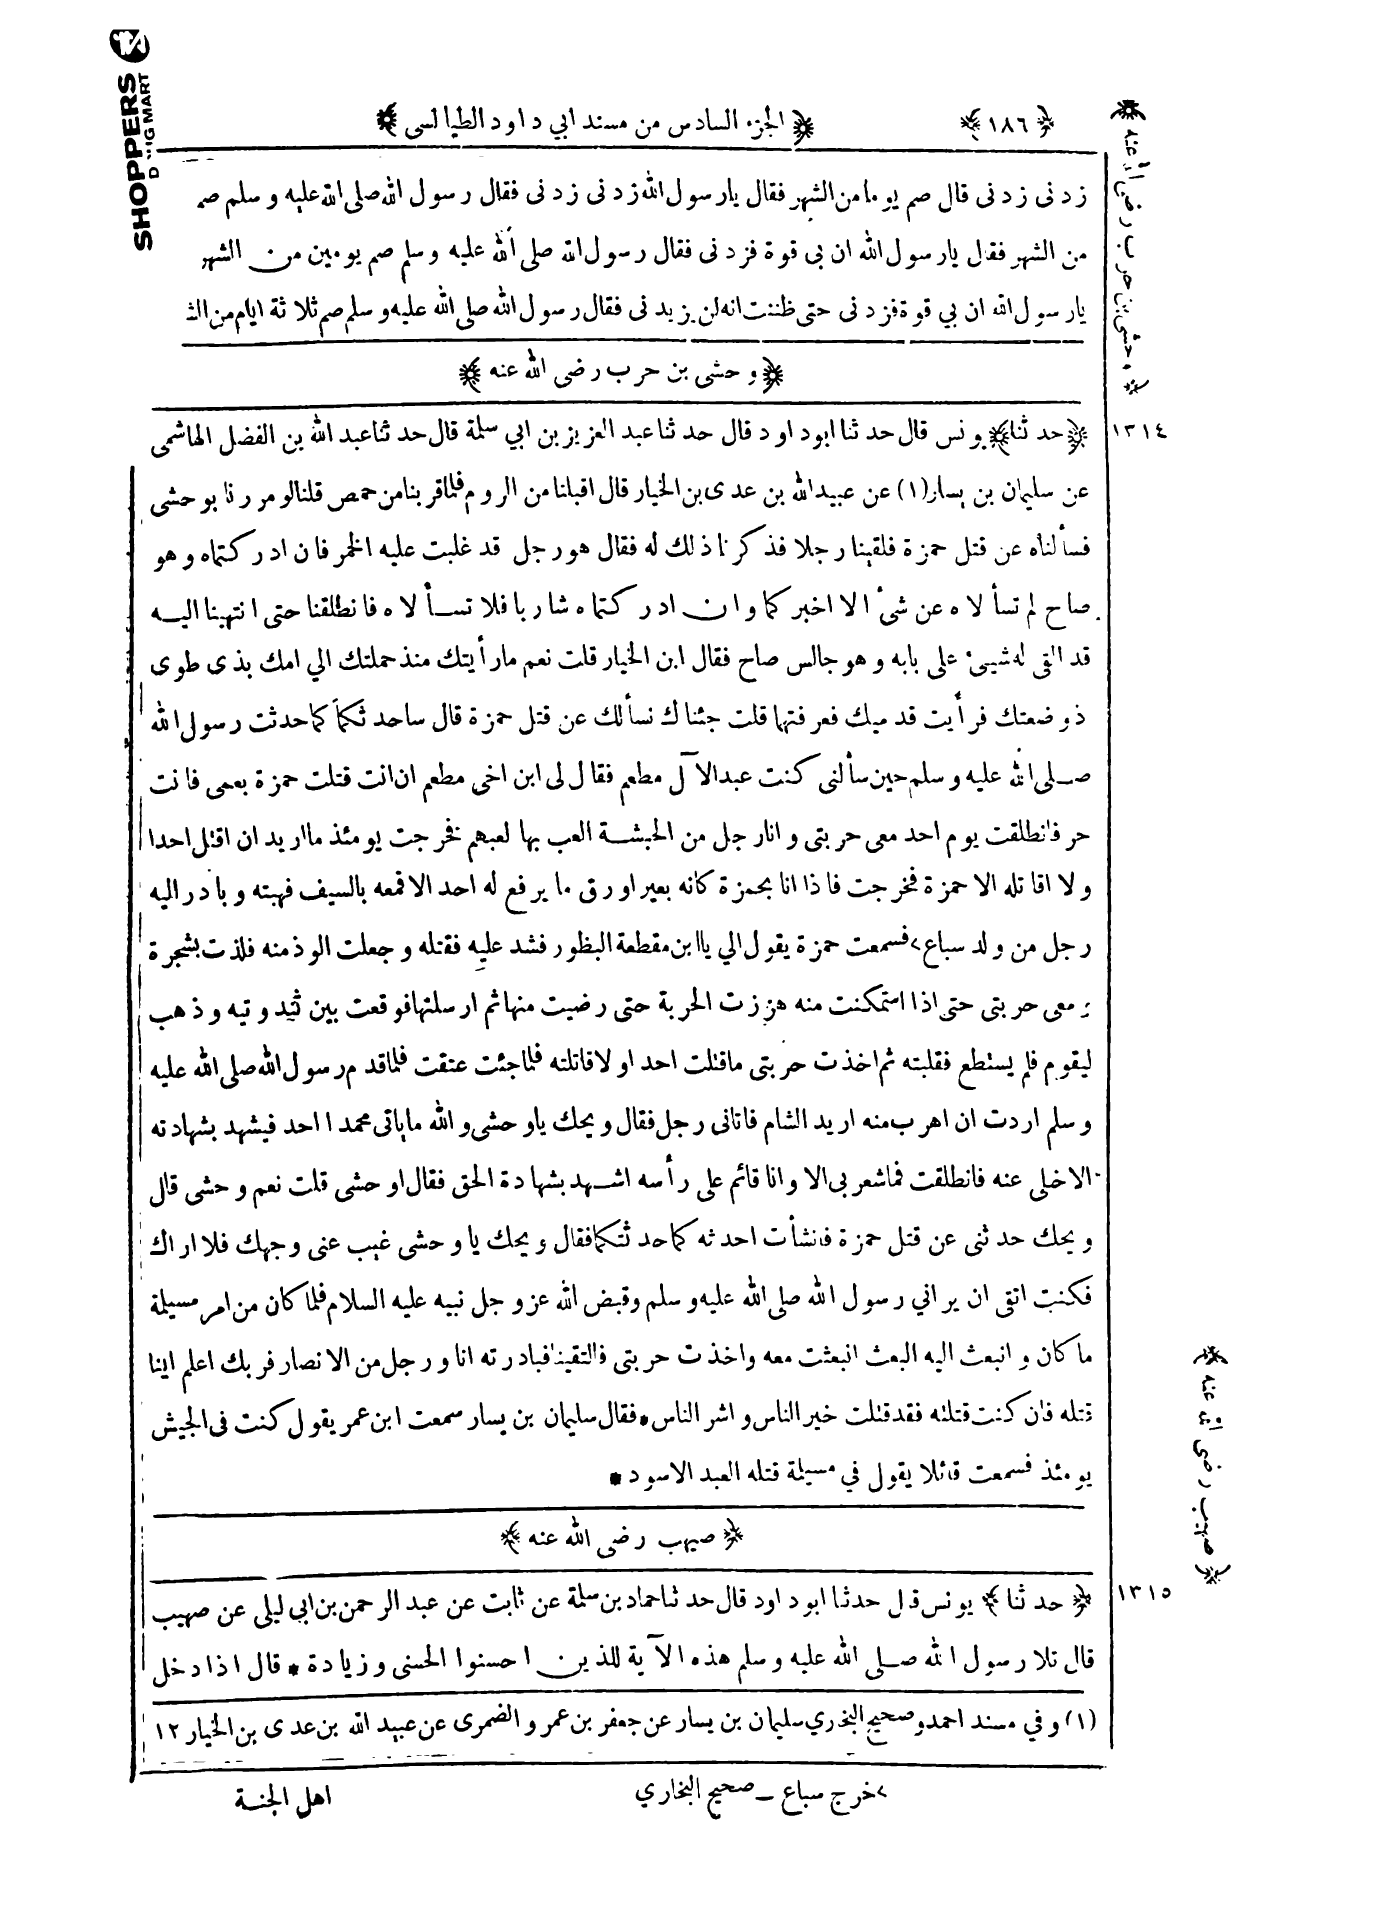 SHOPPERS
﴿ ١٨٦ ﴾ ﴿ الجزء السادس من مسند ابي داود الطيالسى ﴾
زدنى زدنى قال صم يوما من الشهر فقال يارسول الله زدنى زدنى فقال رسول الله صلى الله عليه وسلم صم
من الشهر فقال يارسول الله ان بى قوة فزدنى فقال رسول الله صلى الله عليه وسلم صم يومين من الشهر
يارسول الله ان بي قوة فزدنى حتى ظننت انه لن يزيدنى فقال رسول الله صلى الله عليه وسلم صم ثلاثة ايام من
﴿ وحشى بن حرب رضى الله عنه ﴾
﴿ وحشى بن حرب رضى الله عنه ﴾
١٣١٤ ﴿حدثنا﴾ يونس قال حدثنا ابوداود قال حدثنا عبدالعزيز بن ابي سلمة قال حدثنا عبد الله بن الفضل الهاشمى
عن سليمان بن يسار(١) عن عبيدالله بن عدى بن الخيار قال اقبلنا من الروم فلما قربنا من حمص قلنا لو مررنا بوحشى
فسألناه عن قتل حمزة فلقينا رجلا فذكرنا ذلك له فقال هو رجل قد غلبت عليه الخمر فان ادركتماه وهو
صاح لم تسألاه عن شئ الا اخبركما وان ادركتماه شاربا فلا تسألاه فانطلقنا حتى انتهينا اليه
قد القى له شيئ على بابه وهو جالس صاح فقال ابن الخيار قلت نعم مارأيتك منذ حملتك الي امك بذى طوى
ذوضعتك فرأيت قدميك فعرفتها قلت جئناك نسألك عن قتل حمزة قال ساحدثكما كما حدثت رسول الله
صلى الله عليه وسلم حين سألنى كنت عبدالآل مطعم فقال لى ابن اخى مطعم ان انت قتلت حمزة بعمى فانت
حر فانطلقت يوم احد معى حربتى وانا رجل من الحبشة العب بها لعبهم فخرجت يومئذ ما اريد ان اقتل احدا
ولا اقاتله الا حمزة فخرجت فاذا انا بحمزة كانه بعير اورق ما يرفع له احد الا قمعه بالسيف فهبته وبادر اليه
رجل من ولد سباع> فسمعت حمزة يقول الي يا ابن مقطعة البظور فشد عليه فقتله وجعلت الوذ منه فلذت بشجرة
معى حربتى حتى اذا استمكنت منه هززت الحربة حتى رضيت منها ثم ارسلتها فوقعت بين ثندوتيه وذهب
ليقوم فلم يستطع فقلبته ثم اخذت حربتى ماقتلت احدا ولا قاتلته فلما جئت عتقت فلما قدم رسول الله صلى الله عليه
وسلم اردت ان اهرب منه اريد الشام فاتانى رجل فقال ويحك ياوحشى والله ماياتى محمدا احد فيشهد بشهادته
الاخلى عنه فانطلقت فما شعر بى الا وانا قائم على رأسه اشهد بشهادة الحق فقال اوحشى قلت نعم وحشى قال
ويحك حدثنى عن قتل حمزة فانشأت احدثه كما حدثتكما فقال ويحك يا وحشى غيب عنى وجهك فلا اراك
فكنت اتقى ان يراني رسول الله صلى الله عليه وسلم وقبض الله عز وجل نبيه عليه السلام فلما كان من امر مسيلمة
ماكان وانبعث اليه البعث انبعثت معه واخذت حربتى فالتقينا فبادرته انا ورجل من الانصار فربك اعلم اينا
قتله فان كنت قتلته فقد قتلت خير الناس واشر الناس * فقال سليمان بن يسار سمعت ابن عمر يقول كنت فى الجيش
يومئذ فسمعت قائلا يقول في مسيلمة قتله العبد الاسود *
﴿ صهيب رضى الله عنه ﴾
﴿ صهيب رضى الله عنه ﴾
١٣١٥ ﴿ حدثنا ﴾ يونس قال حدثنا ابوداود قال حدثنا حماد بن سلمة عن ثابت عن عبدالرحمن بن ابي ليلى عن صهيب
قال تلا رسول الله صلى الله عليه وسلم هذه الآية للذين احسنوا الحسنى وزيادة * قال اذا دخل
(١) وفي مسند احمد وصحيح البخري سليمان بن يسار عن جعفر بن عمرو الضمرى عن عبيد الله بن عدى بن الخيار ١٢
> خرج سباع - صحيح البخاري
اهل الجنة